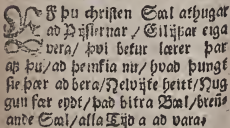 NF þu christen Sæl athugar
ad Pijslernar / Eilijfar eiga
vera / þvi betur lærer þar
af þu / ad þeinkia nu / hvad þungt
sie þær ad bera / Helvijte heitt / Nug
gun fær eydt / þad bitra Bæl / breñ-
ande Sæl / alla Tijd a ad vara: